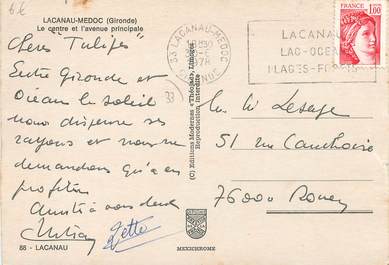 6 €
LACANAU-MEDOC (Gironde)
Le centre et l'avenue principale
Chers "Tulipes"
Entre Gironde et
Océan le soleil
nous dispense ses
rayons et nous ne
demandons qu'à en
profiter
Amitié à vous deux
Yette
88 - LACANAU
33
(C) Editions Modernes « Théojac », Limoges
Reproduction interdite
MEXICHROME
33 LACANAU-MEDOC
1978
GIRONDE
LACANA
LAC-OCEA
PLAGES-FO
1,00
M Lesage
51 rue Cauchoise
76000 Rouen